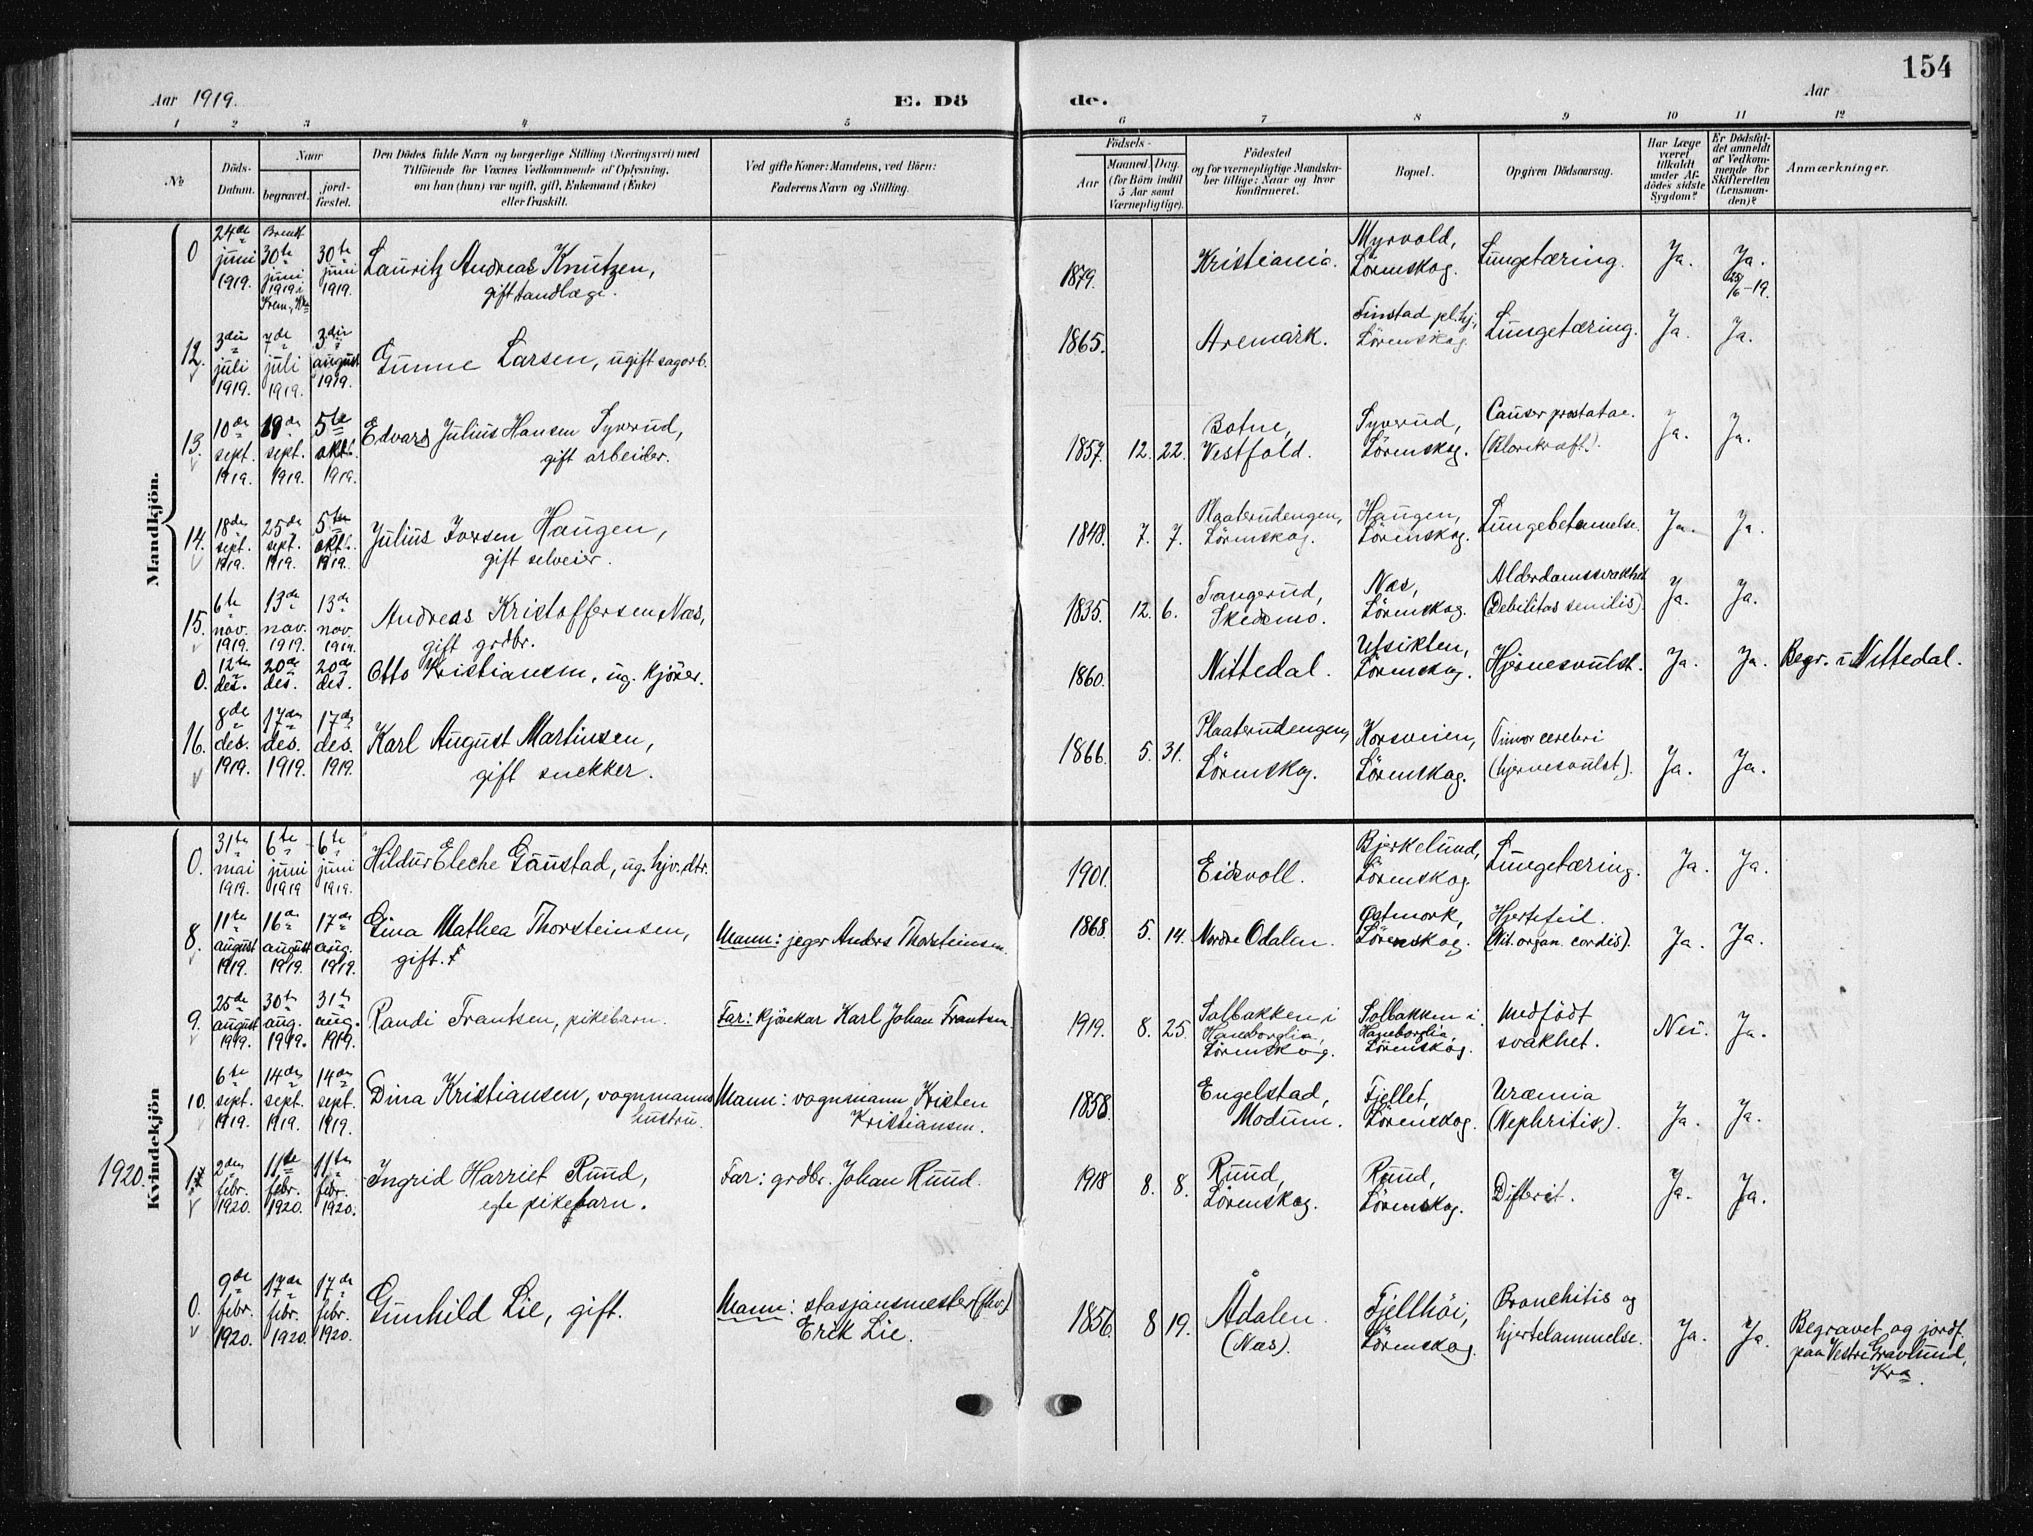 154
Aar 1919. E. Dö de. Aar
1 2 3 4 5 6 7 8 9 10 11 12
No
Döds-Datum.
Naar
begravet.
jord-fæstet.
Den Dödes fulde Navn og borgerlige Stilling (Næringsvei) med
Tilföiende for Voxnes Vedkommende af Oplysning,
om han (hun) var ugift, gift, Enkemand (Enke)
eller fraskilt.
Ved gifte Koner: Mandens, ved Börn:
Faderens Navn og Stilling.
Födsels-
Aar
Maaned Dag.
(for Börn indtil
5 Aar samt
Værnepligtige).
Födested
og for værnepligtige Mandskaber tillige: Naar og hvor
konfirmeret.
Bopæl.
Opgiven Dödsaarsag.
Har Læge
været
tilkaldt
under Afdödes sidste
Sygdom?
Er Dödsfaldet anmeldt
af Vedkommende for
Skifteretten
(Lensmanden)?
Anmærkninger.
Mandkjön.
0 24de juni 1919. Brendt 30te juni 1919 i Krem., Kra 30te juni 1919. Lauritz Andreas Knutzen, gift tandlæge. 1879. Kristiania. Myrvold, Lörenskog. Lungetæring. Ja. Ja. 28/6-19.
12. 3die juli 1919. 7de juli 1919. 3die august 1919. Gunne Larsen, ugift sagarb. 1865. Aremark. Finstad pl.hj., Lörenskog. Lungetæring. Ja. Ja.
13. 10de sept. 1919. 19de sept. 1919. 5te okt. 1919. Edvard Julius Hansen Syverud, gift arbeider. 1857. 12. 22. Botne, Vestfold. Syverud, Lörenskog. Cancer prostatae. (Blærekræft). Ja. Ja.
14. 18de sept. 1919. 25de sept. 1919. 5te okt. 1919. Julius Iversen Haugen, gift selveier. 1848. 7. 7. Plaaterudengen, Lörenskog. Haugen, Lörenskog. Lungebetennelse. Ja. Ja.
15. 6te nov. 1919. 13de nov. 1919. 13de nov. 1919. Andreas Kristoffersen Næs, gift grdbr. 1835. 12. 6. Tangerud, Skedsmo. Næs, Lörenskog. Alderdomssvakhet (Debilitas senilis). Ja. Ja.
0. 12te des. 20de des. 20de des. Otto Kristiansen, ug. kjörer. 1860. Nittedal. Utsikten, Lörenskog. Hjernesvulst. Ja. Ja. Begr. i Nittedal.
16. 8de des. 1919. 17de des. 1919. 17de des. 1919. Karl August Martinsen, gift snekker. 1866. 5. 31. Plaaterudengen, Lörenskog. Korsveien, Lörenskog. Tumor cerebri (hjernesvulst). Ja. Ja.
Kvindekjön
0. 31te mai 1919. 6te juni 1919 6te juni 1919. Hildur Eleche Gaustad, ug. hjv. dtr. 1901. Eidsvoll. Bjerkelund, Lörenskog. Lungetæring. Ja. Ja.
8. 11te august 1919. 16de august 1919. 17de aug. 1919. Gina Mathea Thorsteinsen, gift. Mann: jeger Anders Thorsteinsen. 1868 5. 14. Nordre Odalen. Østmork, Lörenskog. Hjertefeil. (Vit. organ. cordis). Ja. Ja.
9. 25de august 1919. 30te aug. 1919. 31te aug. 1919. Randi Frantsen, pikebarn. Far: kjörekar Karl Johan Frantsen. 1919. 8. 25. Solbakken i Haneborglia, Lörenskog. Solbakken i Haneborglia, Lörenskog. Medfödt svakhet. Nei. Ja.
10. 6te sept. 1919. 14de sept. 1919. 14de sept. 1919. Dina Kristiansen, vognmanns hustru. Mann: vognmann Kristen Kristiansen. 1858. Engelstad, Modum. Fjellet, Lörenskog. Uræmia (Nephritis). Ja. Ja.
1920. 1. 2den febr. 1920. 11te febr. 1920. 11te febr. 1920. Ingrid Harriet Ruud, egte pikebarn. Far: grdbr. Johan Ruud. 1918 8. 8. Ruud, Lörenskog. Ruud, Lörenskog. Difterit. Ja. Ja.
0. 9de febr. 1920. 17de febr. 1920. 17de febr. 1920. Gunhild Lie, gift. Mann: stasjonsmester (fhv.) Erik Lie. 1856. 8 19. Ådalen (Næs). Fjellhöi, Lörenskog. Bronchitis og hjertelammelse. Ja. Ja. Begravet og jordf. paa Vestre Gravlund, Kra.